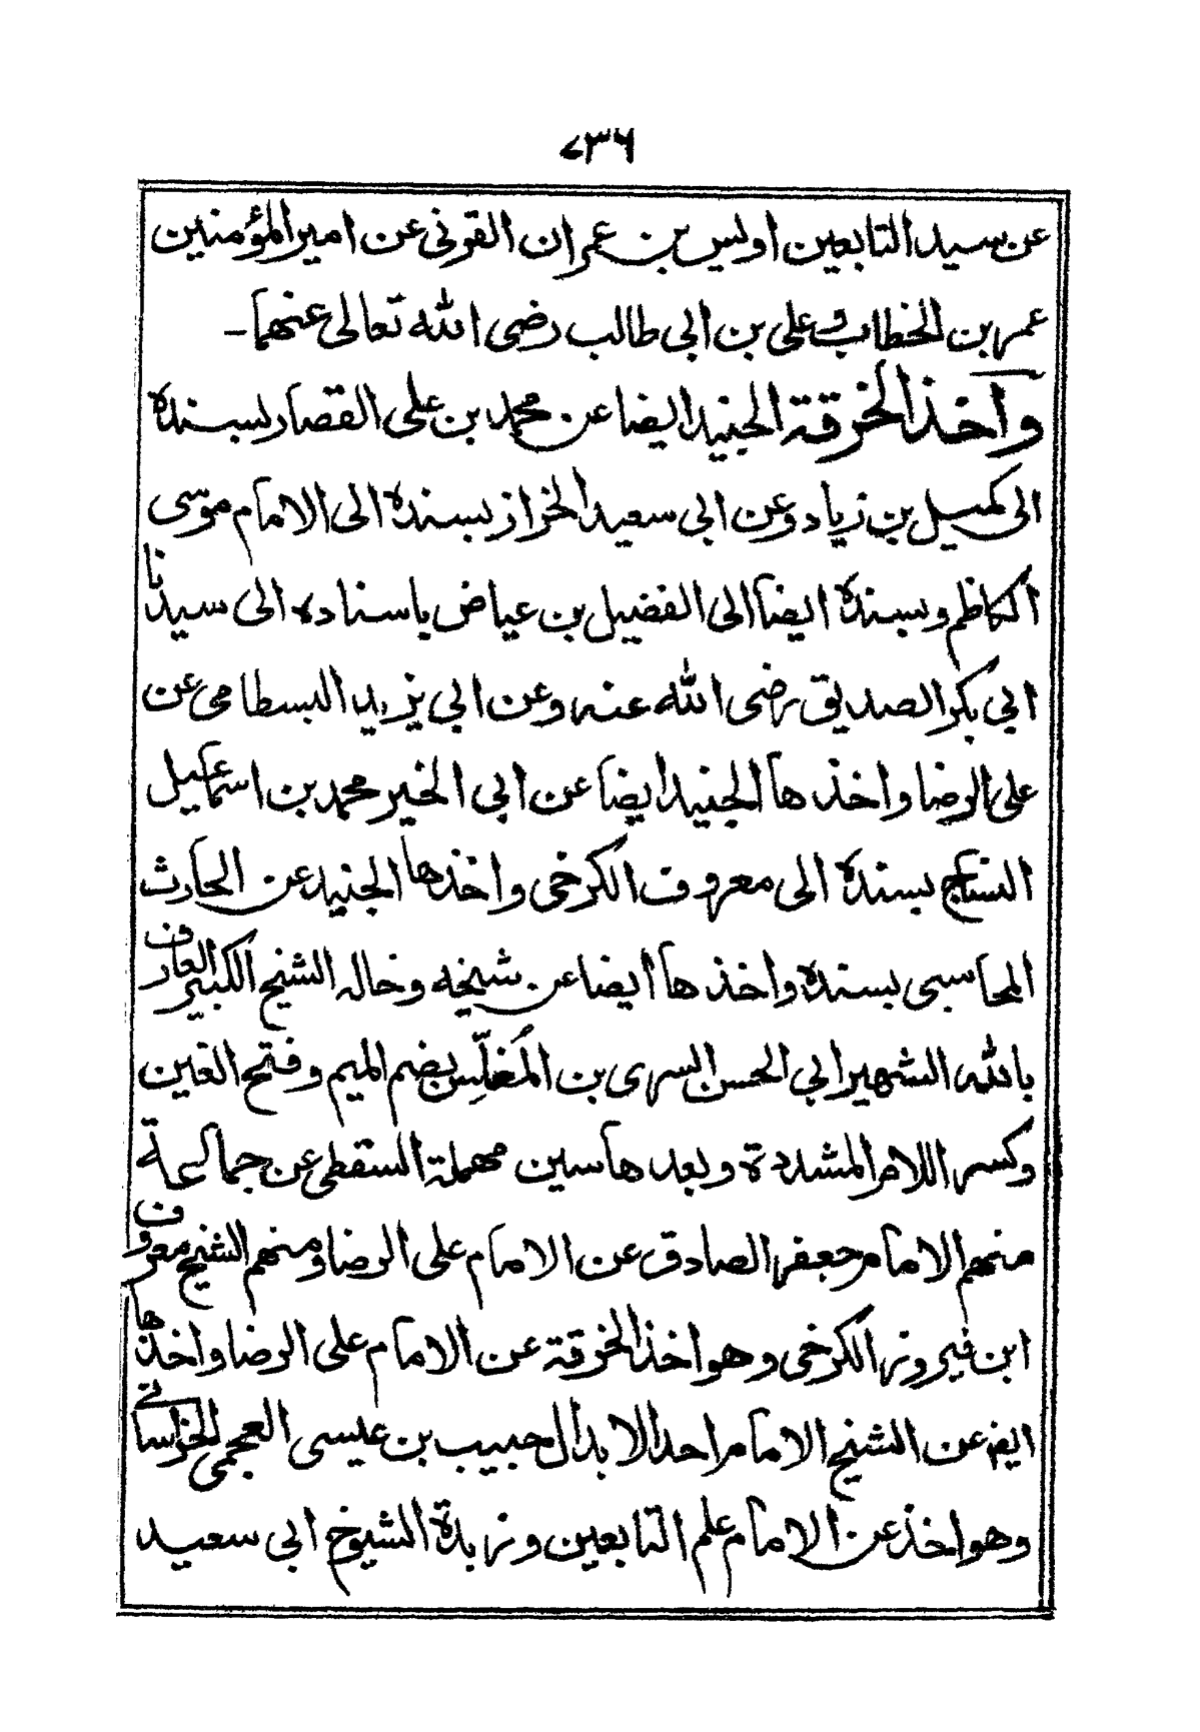 ٧٣٦
عن سيد التابعين اويس بن عمران القرنى عن امير المؤمنين
عمر بن الخطاب وعلى بن ابى طالب رضى الله تعالى عنهما۔
واخذ الخرقة الجنيد ايضا عن محمد بن على القصار بسنده
الى كميل بن زياد وعن ابى سعيد الخراز بسنده الى الامام موسى
الكاظم وبسنده ايضا الى الفضيل بن عياض باسناده الى سيدنا
ابي بكر الصديق رضى الله عنه وعن ابي يزيد البسطامى عن
على الرضا واخذها الجنيد ايضا عن ابي الخير محمد بن اسماعيل
النساج بسنده الى معروف الكرخى واخذها الجنيد عن الحارث
المحاسبى بسنده واخذها ايضا عن شيخه وخاله الشيخ الكبير العارف
بالله الشهير ابي الحسن السرى بن المُغَلِّس بضم الميم وفتح الغين
وكسر اللام المشددة وبعدها سين مهملة السقطى عن جماعة
منهم الامام جعفر الصادق عن الامام على الرضا ومنهم الشيخ معروف
ابن فيروز الكرخى وهو اخذ الخرقة عن الامام على الرضا واخذها
ايضا عن الشيخ الامام احد الابدال حبيب بن عيسى العجمى الخراسانى
وهو اخذ عن الامام علم التابعين وزبدة الشيوخ ابى سعيد